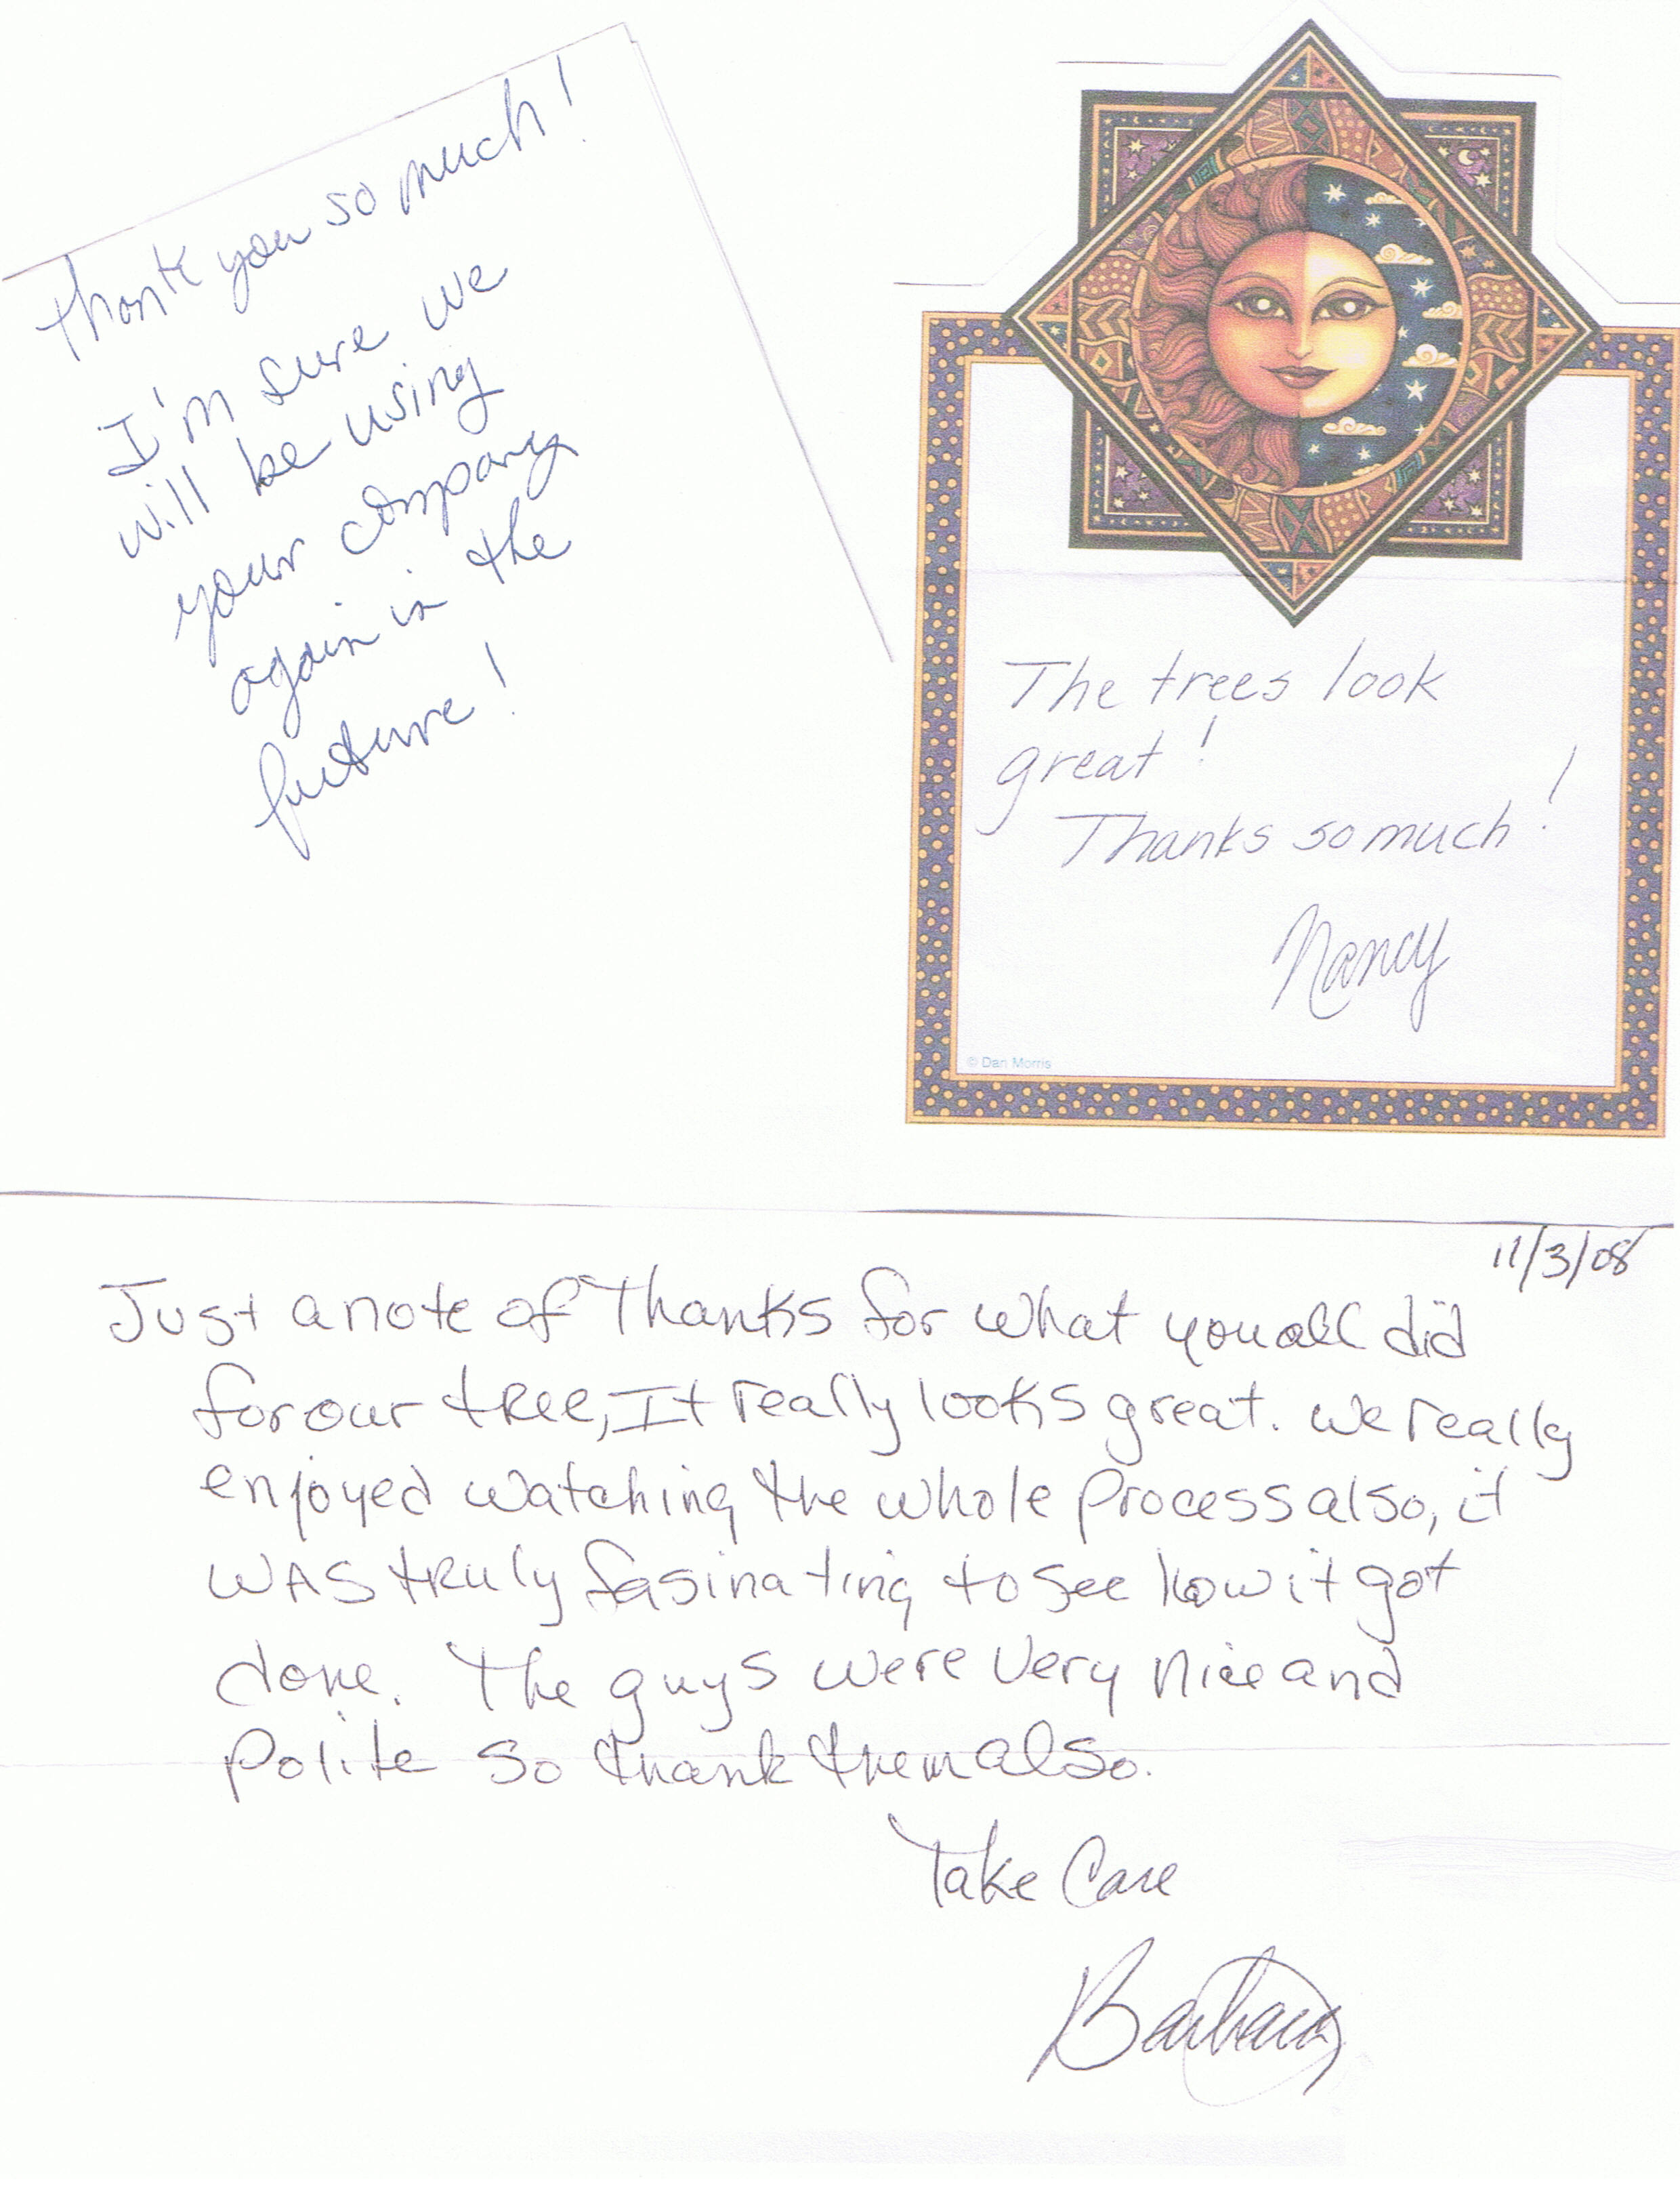 Thank you so much!
I'm sure we
will be using
your company
again in the
future!
The trees look
great!
Thanks so much!
Nancy
© Dan Morris
11/3/08
Just a note of Thanks for what you all did
for our tree, It really looks great. We really
enjoyed watching the whole process also, it
was truly fasinating to see how it got
done. The guys were very nice and
polite so thank them also.
Take Care
Barbara